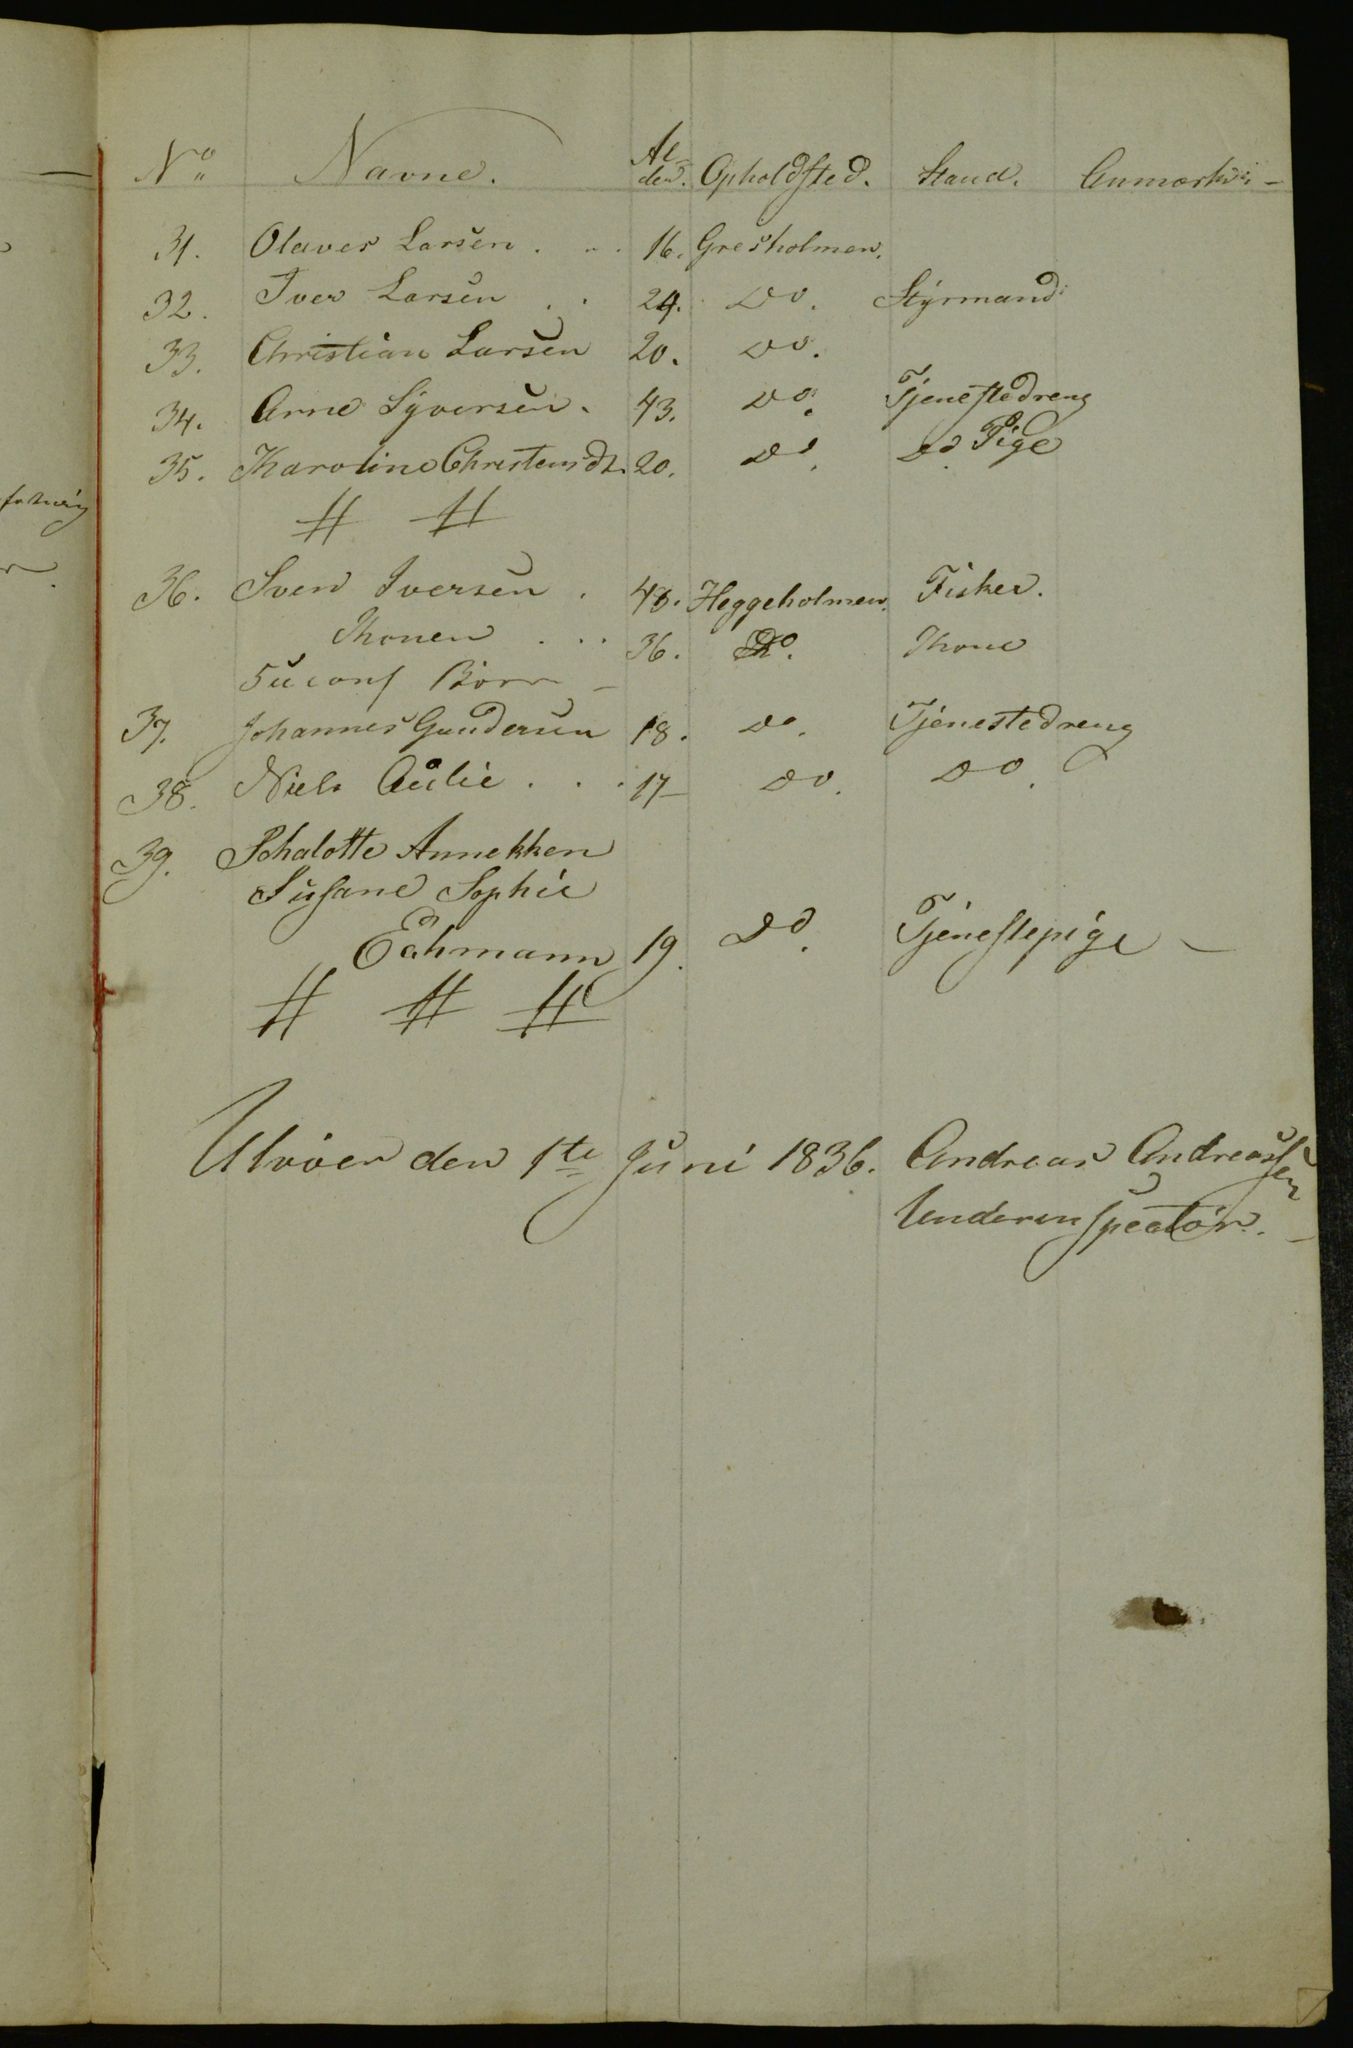 No Navne. Al-
der. Opholdsted. Stand. Anmærkn: -
31. Olaves Larsen . . . 16. Gresholmen.
32. Iver Larsen . . 24. Do. Styrmand
33. Christian Larsen 20. Do.
34. Arne Syversen. 43. Do. Tjenestedreng
35. Karoline Christensdt. 20. Do. Do Pige
36. Sven Iversen . 48. Heggeholmen. Fisker.
Konen . . . 36. Do. Kone
5 uconf Børn -
37. Johannes Gundersen 18. Do. Tjenestedreng
38. Niels Aulie . . . 17- Do. Do.
39. Schalotte Annekken
Susane Sophie
Eahmann 19. Do. Tjenestepige -
Ulvöen den 1te Juni 1836. Andreas Andreassen
Underinspectör. -